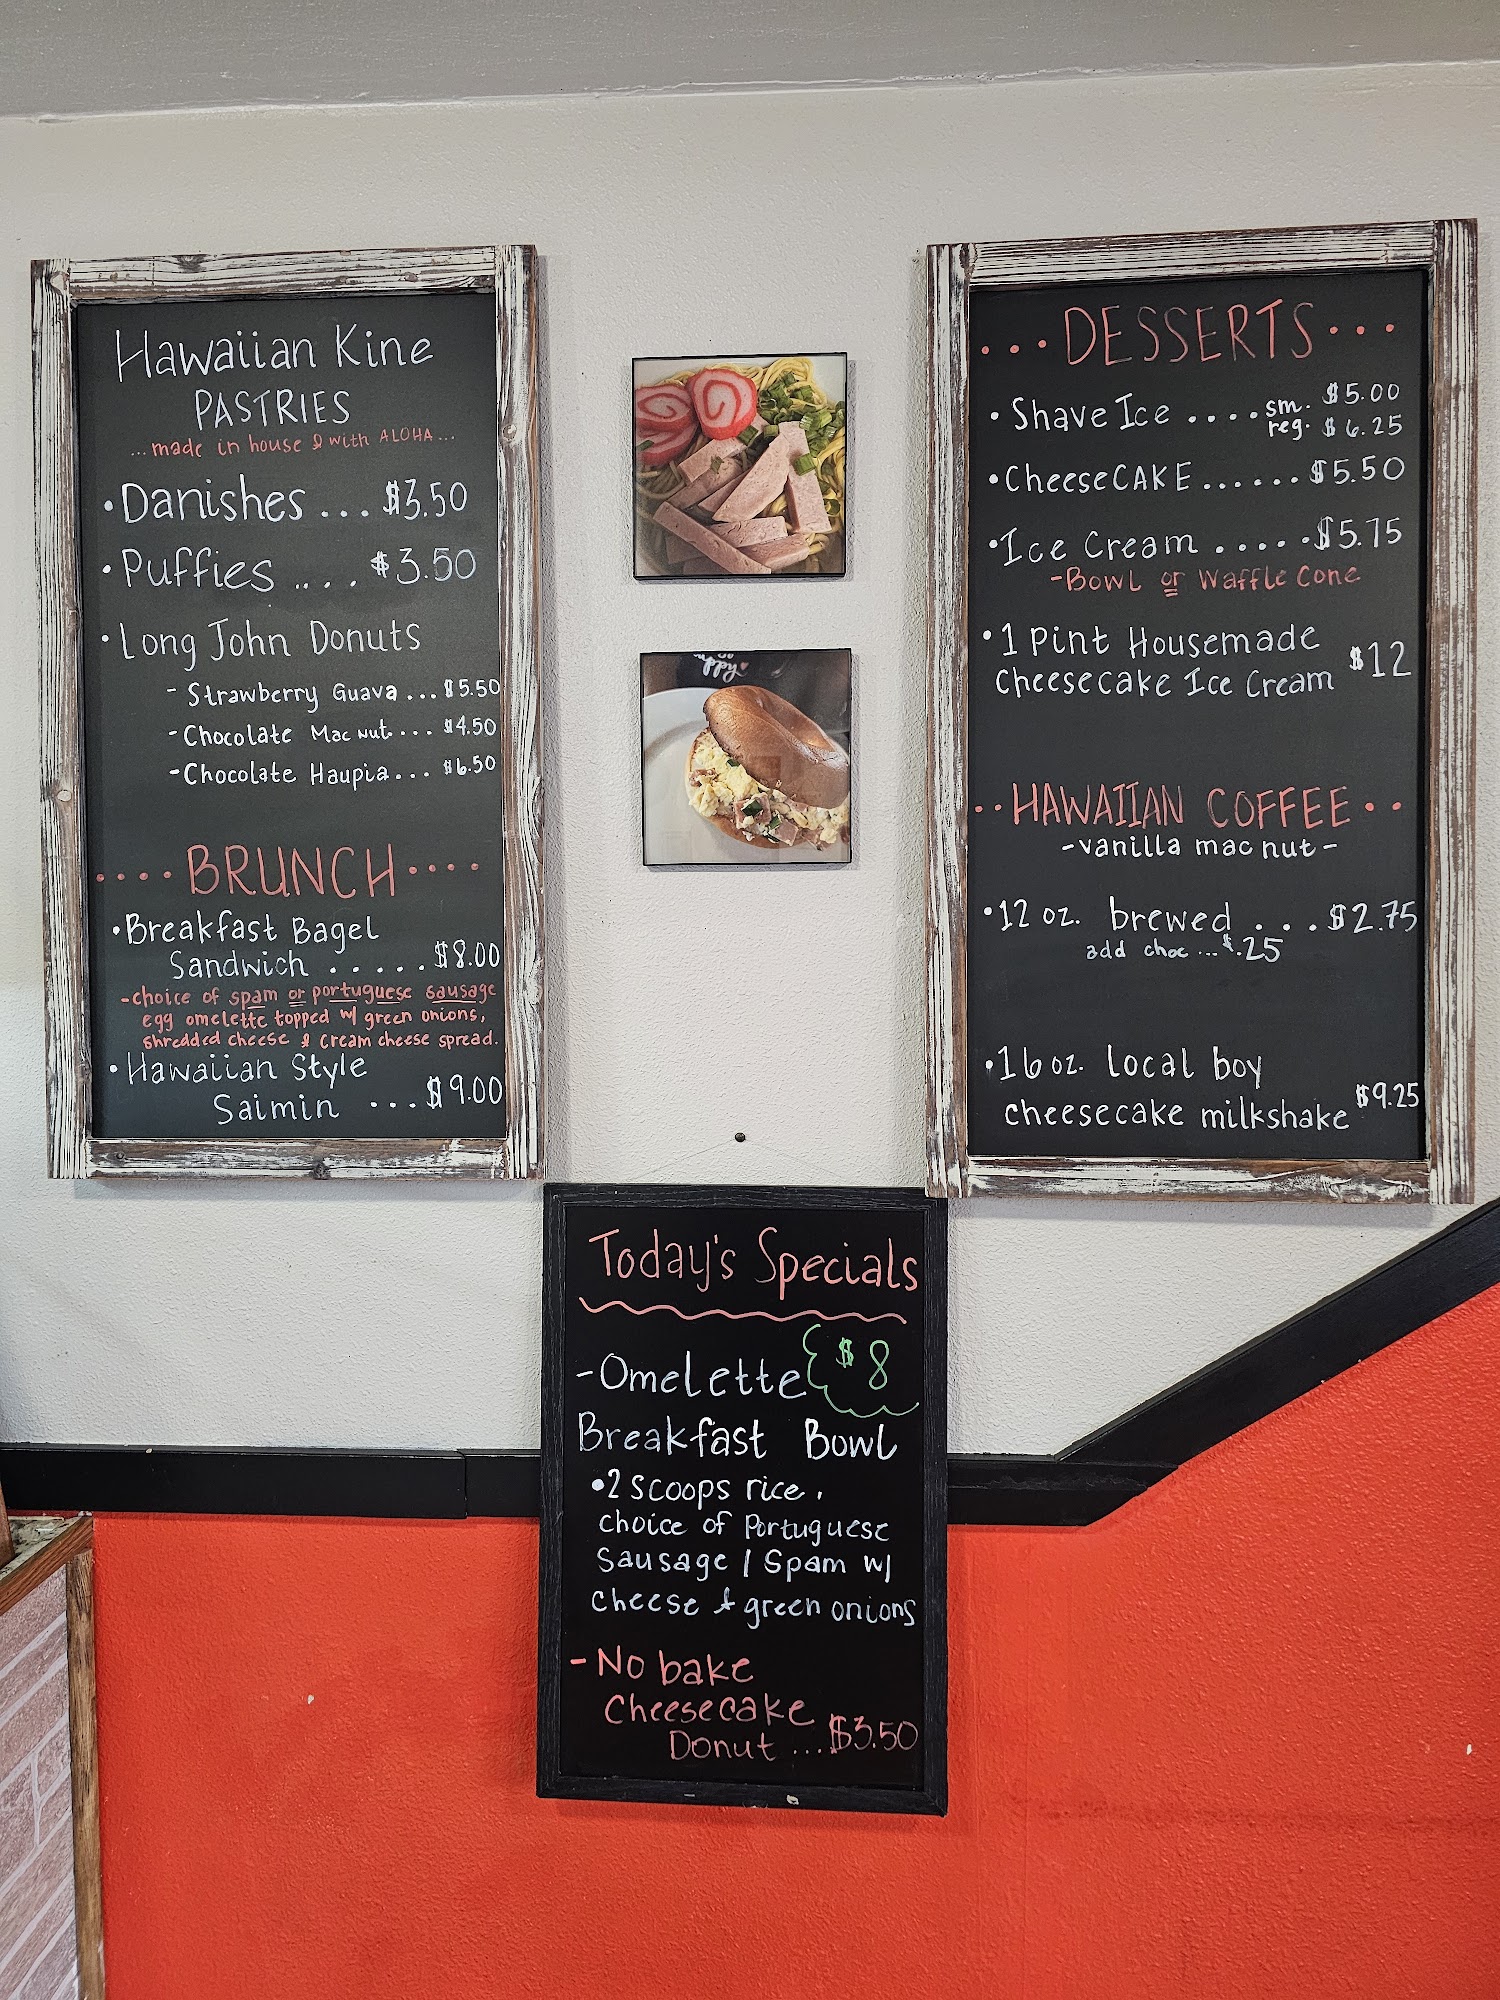 Hawaiian Kine
PASTRIES
...made in house & with ALOHA...
•Danishes ...$3.50
•Puffies .... $3.50
•Long John Donuts
- Strawberry Guava ... $5.50
-Chocolate Mac nut.... $4.50
-Chocolate Haupia... $6.50
....BRUNCH....
•Breakfast Bagel
Sandwich .....$8.00
-choice of spam or portuguese sausage
egg omelette topped w/ green onions,
shredded cheese & cream cheese spread.
•Hawaiian Style
Saimin ...$9.00
...DESSERTS...
•Shave Ice ....sm. $5.00
reg. $6.25
•CheeseCAKE......$5.50
•Ice Cream .....$5.75
-Bowl or Waffle Cone
•1 Pint Housemade
Cheesecake Ice Cream $12
..HAWAIIAN COFFEE..
-vanilla mac nut-
•12 oz. brewed ...$2.75
add choc ...$.25
•16 oz. local boy
cheesecake milkshake $9.25
Today's Specials
-Omelette $8
Breakfast Bowl
•2 scoops rice,
choice of Portuguese
Sausage / Spam w/
cheese & green onions
-No bake
Cheesecake
Donut ....$3.50